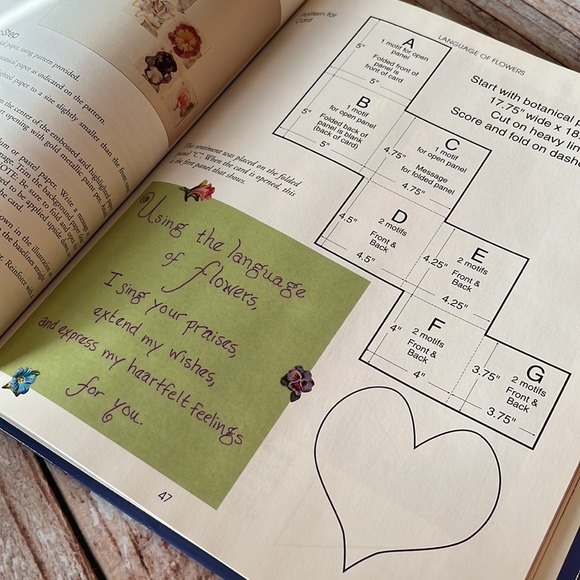 Step
using pattern provided.
paper as indicated on the pattern.
paper to a size slightly smaller than the
in the center of the embossed and highlighted paper
opening with gold metallic paint pen.
or pasted paper. Write a
Trim the background paper
NOTE: Be sure to fold and
to be applied upside down
the card.
own in the illustration
the baselines
Reinforce with
Pattern for
Card
LANGUAGE OF FLOWERS
Start with botanical
17.75" wide x 18
Cut on heavy lin
Score and fold on dashe
A
1 motif for open
panel
Folded front of
panel is
front of card
5"
5"
B
1 motif
for open panel
Folded back of
panel is blank
(back of card)
5"
5"
C
1 motif
for open panel
Message
for folded panel
4.75"
4.75"
D
2 motifs
Front &
Back
4.5"
4.5"
E
2 motifs
Front &
Back
4.25"
4.25"
F
2 motifs
Front &
Back
4"
4"
G
2 motifs
Front &
Back
3.75"
3.75"
The sentiment was placed on the folded
panel "C". When the card is opened, this
is the first panel that shows.
Using the language
of flowers,
I sing your praises,
extend my wishes,
and express my heartfelt feelings
for you.
47